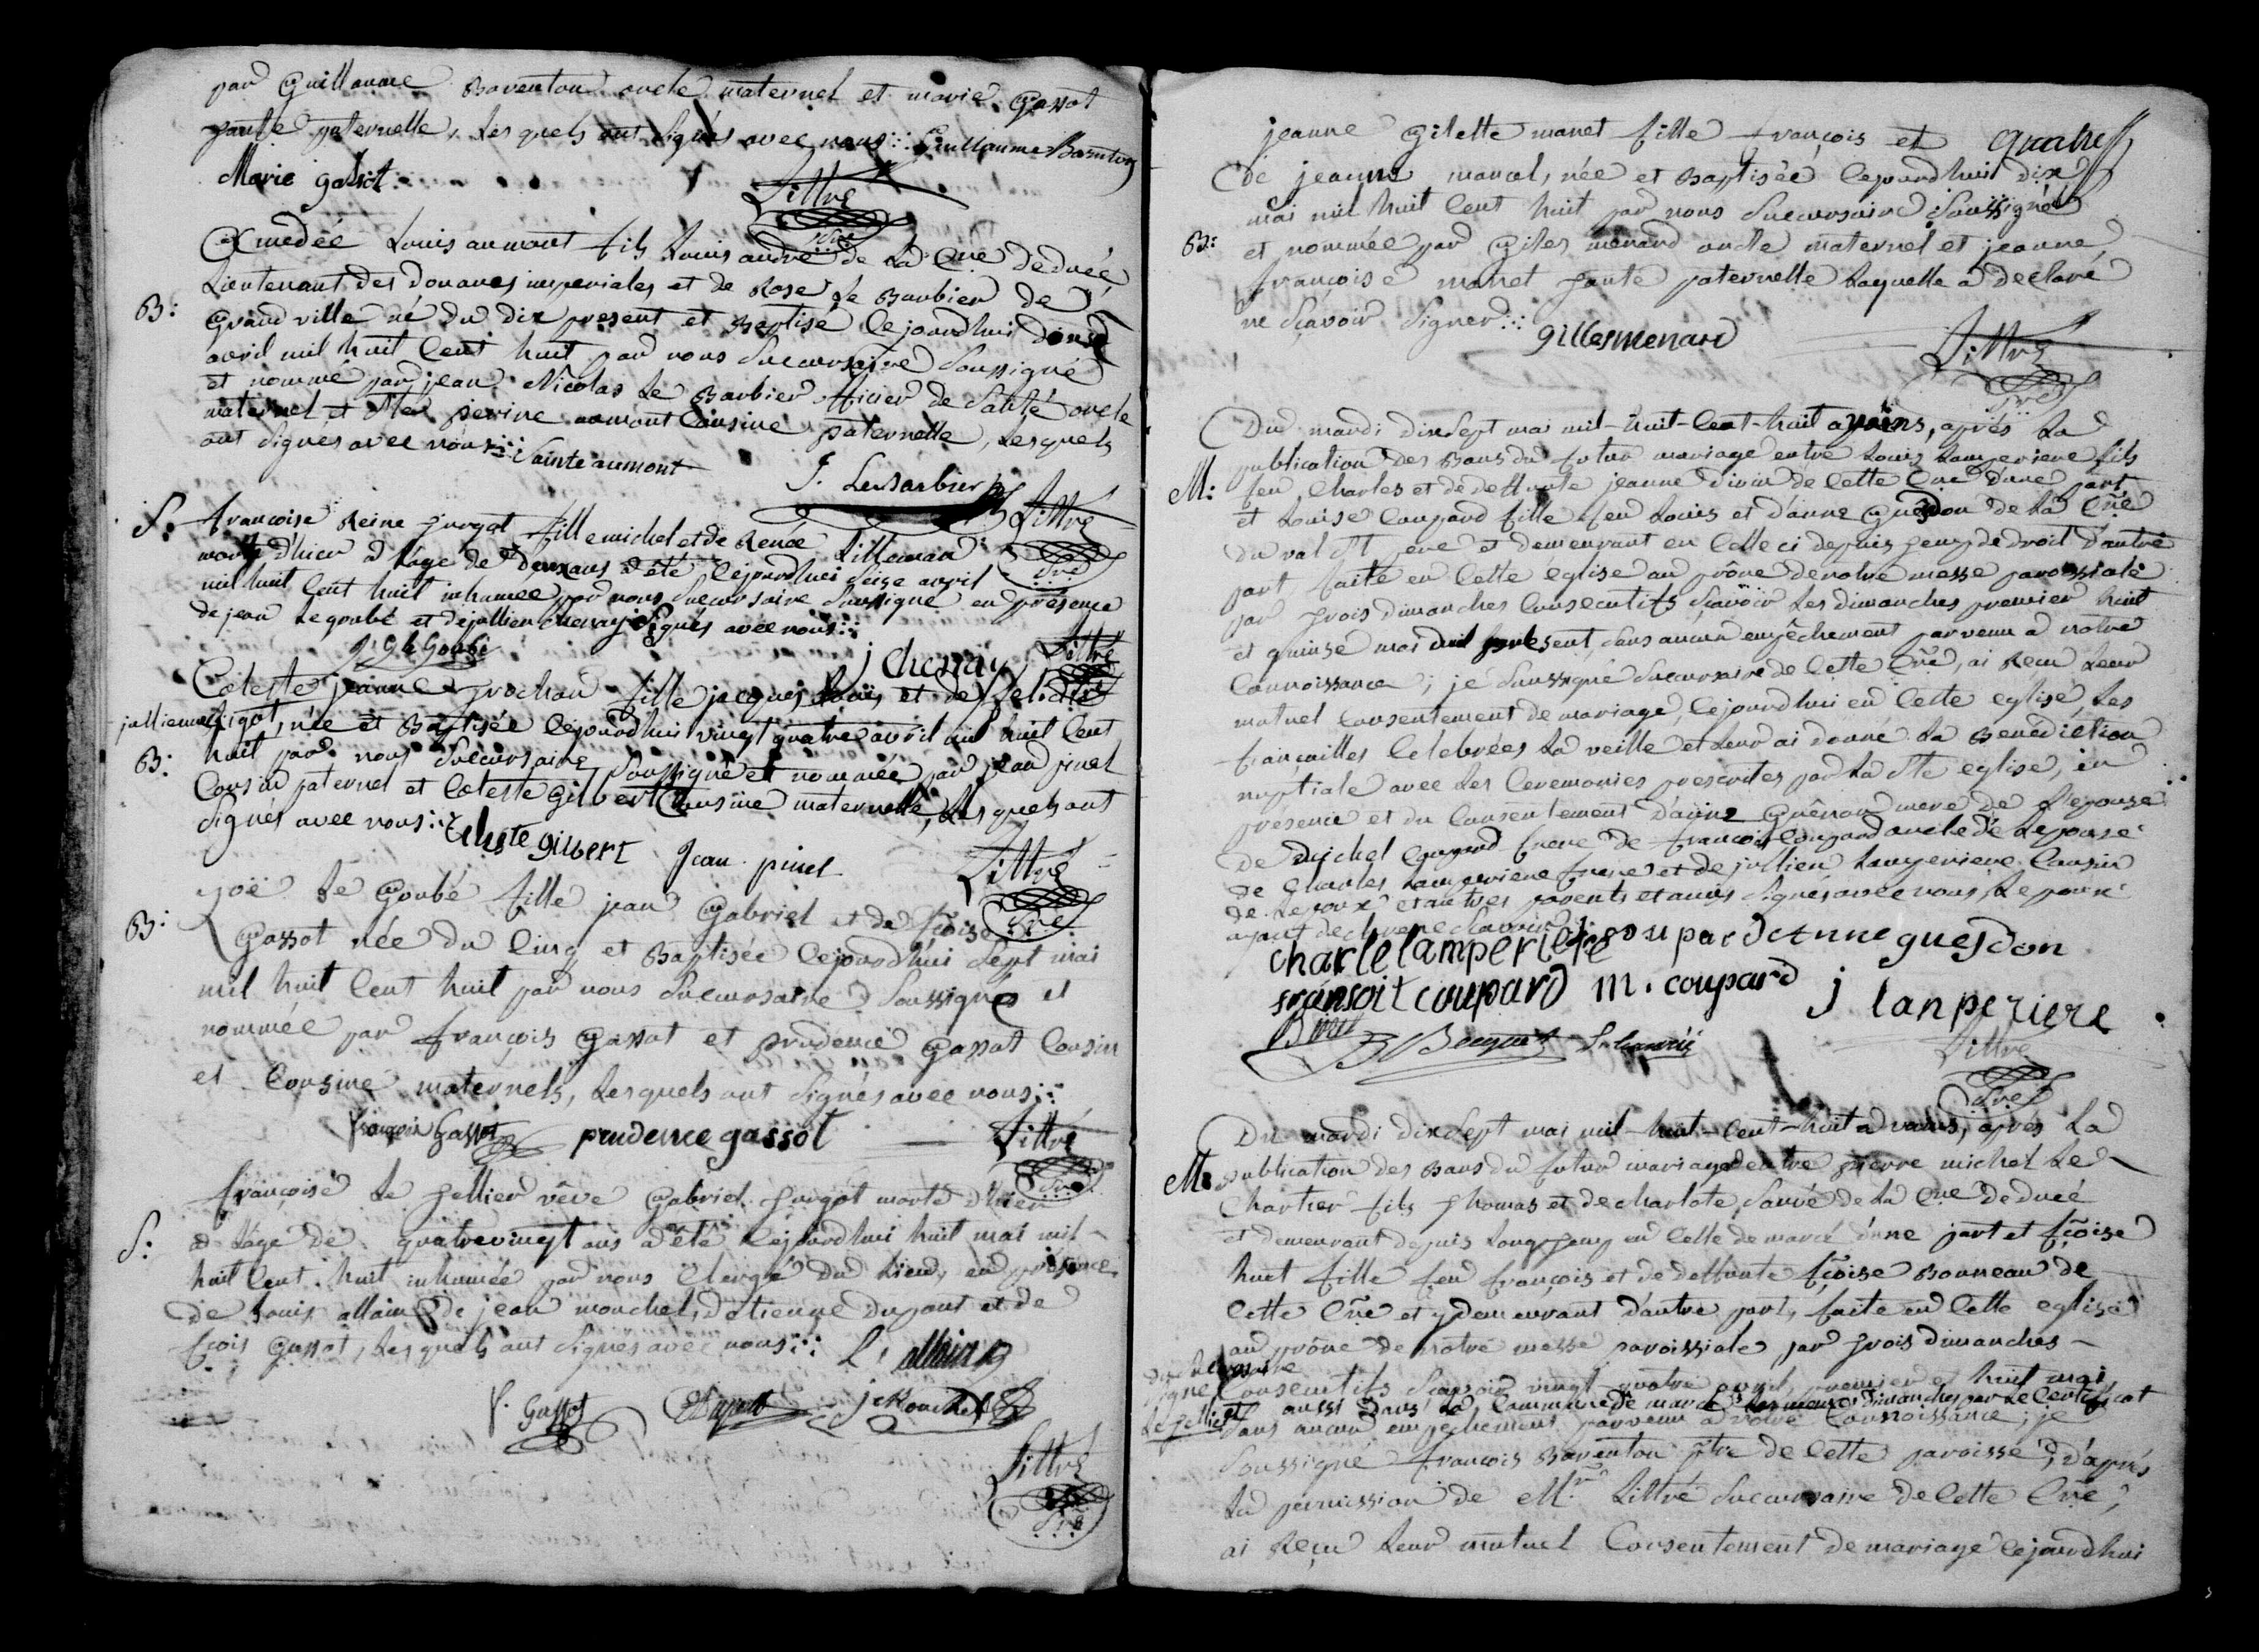 par Guillaume Baventon oncle maternel et marie Gassot
tante paternelle, lesquels ont signés avec nous Guillaume Baventon
Marie gassot
Littré
Amedée Louis aumont fils Louis andré de la Cne de ducé
Lieutenant des douanes imperiales et de Rose Le Barbier de
B:
Grandville né du dix present et Baptisé cejourdhui
avril mil huit Cent huit par nous Succursaire Soussigné
et nommé par jean Nicolas Le Barbier officier de Santé oncle
maternel et perine aumont Cousine paternelle, lesquels
ont Signés avec nous Sainte aumont
J. LeBarbier
Littré
S.
francoise Reine turgot fille michel et de Renée
morte d'hier à l'âge de deux ans a été cejourdhui Seize avril
mil huit Cent huit inhumée par nous Succursaire Soussigné en présence
de jean Legoubé et de jullien chenay Signés avec nous
J G le Goubé
j chenay
Littré
Celeste jeanne trochau fille jacques Louis et de
jullienne Rigot, née et Baptisée cejourdhui vingt quatre avril mil huit Cent
B:
huit par nous Succursaire Soussigné et nommée par jean pinel
Cousin paternel et Celeste Gilbert Cousine maternelle, lesquels ont
Signés avec nous
Celeste gilbert
Jean pinel
Littré
Zoé Le Goubé fille jean Gabriel et de fcoise
B:
Gassot née du Cinq et Baptisée cejourd'hui Sept mai
mil huit Cent huit par nous Succursaire Soussigné et
nommée par françois Gassot et prudence Gassot Cousin
et Cousine maternels, lesquels ont Signés avec nous
françois Gassot
prudence gassot
Littré
françoise Le tellier vêve Gabriel turgot morte d'hier
S:
à l'âge de quatrevingt ans a été cejourdhui huit mai mil
huit Cent huit inhumée par nous Clergé du Lieu, en présence
de Louis allain, de jean mouchel, d'etienne dupont et de
fcois Gassot, lesquels ont Signés avec nous
L. allain
f. Gassot
EDupont
j Mouchel
Littré
quatre
jeanne Gilette manet fille françois et
de jeanne marcel, née et Baptisée cejourdhui dix
mai mil huit Cent huit par nous Succursaire Soussigné
B:
et nommée par Giles menard oncle maternel et jeanne
françoise manet tante paternelle laquelle a declaré
ne Scavoir Signer
gilles menard
Littré
Du mardi dix Sept mai mil-huit-Cent-huit, après la
publication des Bans du futur mariage entre Louis Lamperiere fils
M:
feu Charles et de deffunte jeanne de Cette Cne d'une part
et Louise Coupard fille feu Louis et d'anne Quesdon de la Cne
du val St pere et demeurant en Celle ci depuis temps de droit d'autre
part, faite en Cette église au prône de notre messe paroissiale
par trois dimanches Consecutifs Scavoir les dimanches premier huit
et quinze mai present, Sans aucun empêchement parvenu à notre
Connoissance; je Soussigné Succursaire de Cette Cne, ai Recu leur
mutuel Consentement de mariage, cejourdhui en Cette eglise, les
fiançailles Celebrées la veille et leur ai donné la Benédiction
nuptiale avec les Ceremonies prescrites par la Ste eglise, en
présence et du Consentement d'anne mere de l'epouse
de Michel Coupard frere de françois Coupard oncle de l'epouse
de Charles Lamperiere frere et de jullien Lamperiere Cousin
de l'epoux et autres parents et amis Signés avec nous, l'epoux
ayant declaré ne Scavoir
charle lamperiere l coupard anne quesdon
fransoit coupard m. coupard j lanperiere
Littré
Du mardi dix Sept mai mil-huit-Cent-huit, après la
M:
publication des Bans du futur mariage entre pierre michel Le
Chartier fils thomas et de charlote Sauvé de la Cne de ducé
et demeurant depuis Longtemp en Celle de marcé d'une part et fcoise
huet fille feu françois et de deffunte fcoise Bonneau de
Cette Cne et y demeurant d'autre part, faite en Cette eglise
au prône de notre messe paroissiale, par trois dimanches
Consecutifs Scavoir vingt quatre avril, premier et huit mai
et aussi dans la Commune de marcé les mêmes dimanches par le Certificat
signé
Le tellier
Sans aucun empechement parvenu à notre Connoissance; je
Soussigné françois Baventon ptre de Cette paroisse, d'après
la permission de Mr. Littré Succursaire de Cette Cne,
ai Reçu leur mutuel Consentement de mariage cejourdhui